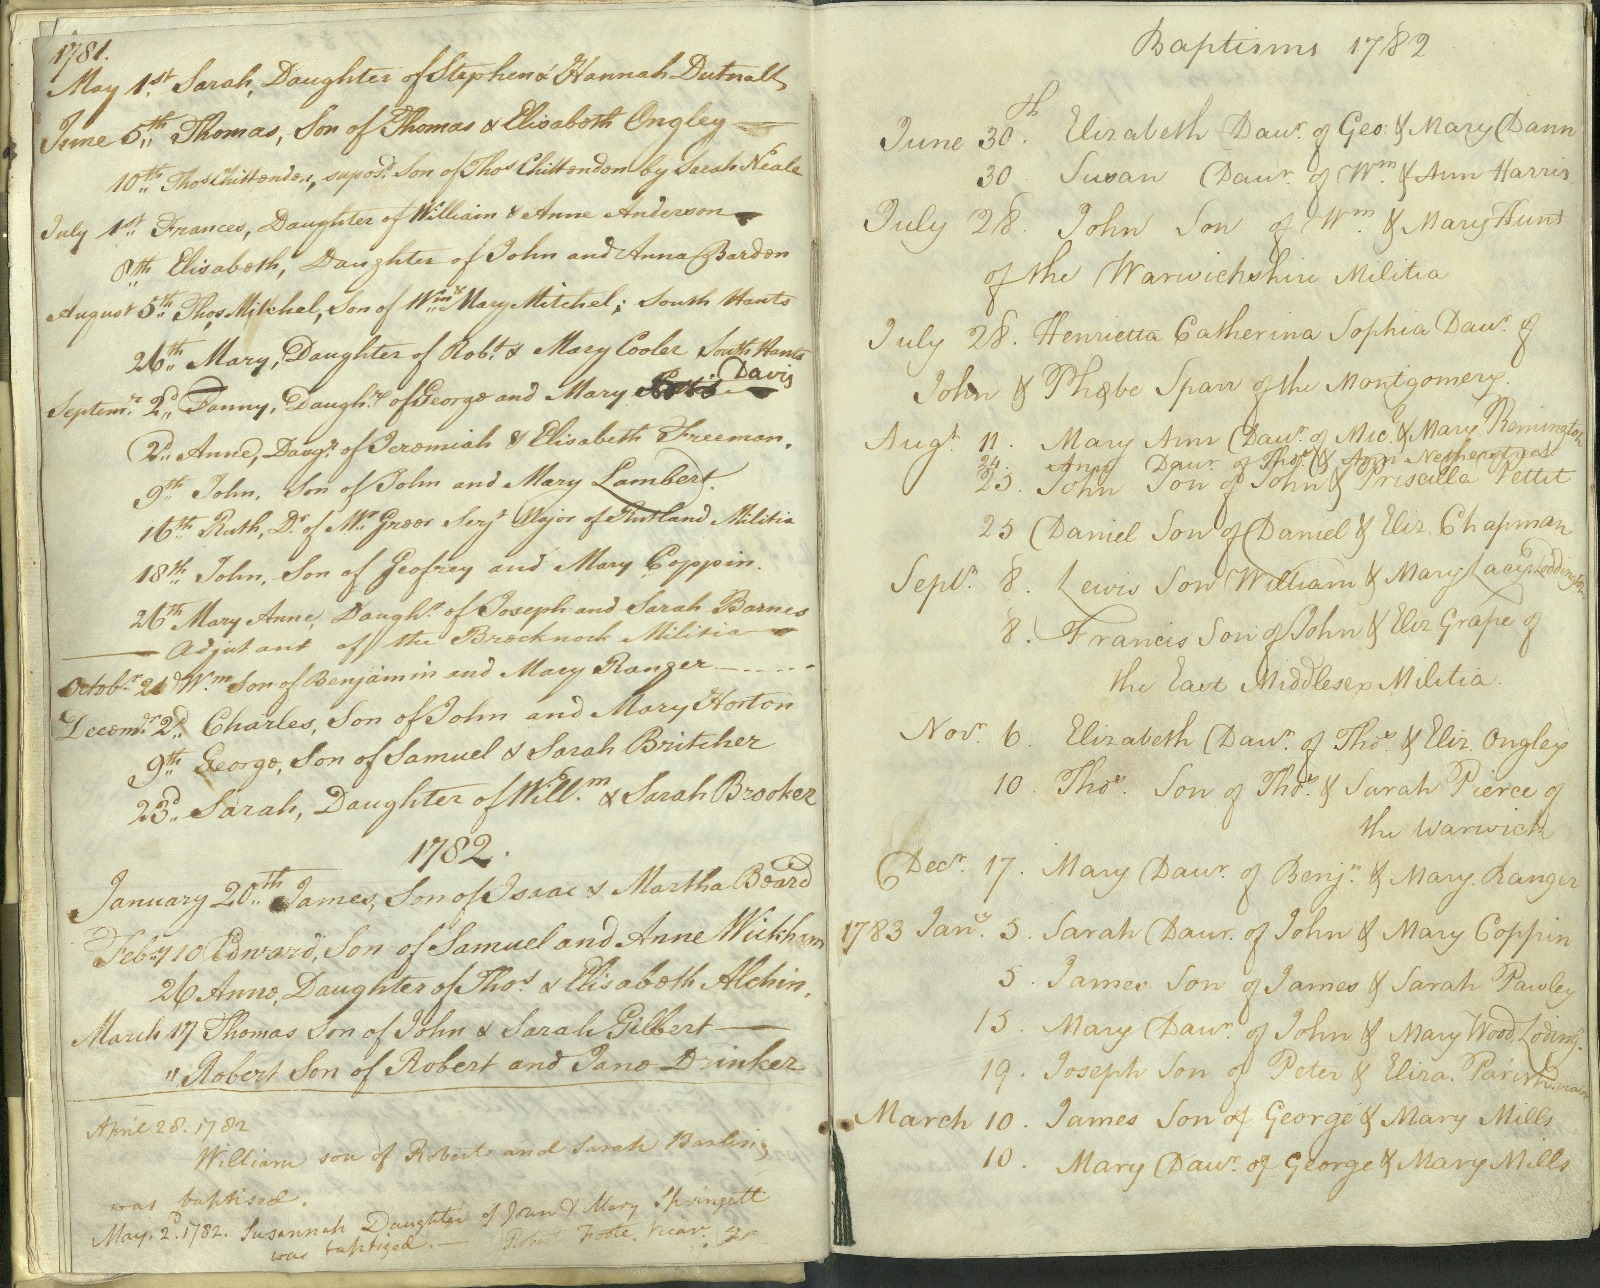 1781.
May 1.st Sarah, Daughter of Stephen & Hannah Dutnall
June 5.th Thomas, Son of Thomas & Elisabeth Ongley
10.th Thos Chittenden, supos.d Son of Thos Chittendon by Sarah Neale
July 1.st Frances, Daughter of William & Anne Anderson
8.th Elisabeth, Daughter of John and Anna Bardon
August 5.th Thos, Mitchel, Son of Wm & Mary Mitchel; South Hants
26.th Mary, Daughter of Rob.t & Mary Cooler South Hants
Septem.r 2.d Fanny, Daugh.r of George and Mary Davis
2.d Anne, Daug.r of Jeremiah & Elisabeth Freeman.
9.th John, Son of John and Mary Lambert.
16.th Ruth, D.r of M.r Greer Serj.t Major of Rutland Militia
18.th John, Son of Geofrey and Mary Coppin.
26.th Mary Anne, Daugh.r of Joseph and Sarah Barnes
Adjutant of the Brecknock Militia
Octob.r 21 W.m Son of Benjamin and Mary Ranger
Decem.r 2.d Charles, Son of John and Mary Horton
9.th George, Son of Samuel & Sarah Britcher
23.d Sarah, Daughter of Will.m & Sarah Brooker
1782.
January 20.th James, Son of Isaac & Martha Board
Feb.ry 10 Edward, Son of Samuel and Anne Wickham
26 Anne, Daughter of Tho.s & Elisabeth Alchin.
March 17 Thomas Son of John & Sarah Gilbert
" Robert Son of Robert and Jane Drinker
April 28. 1782
William son of Robert and Sarah Barling
was baptised.
May. 2.d 1782. Susannah Daughter of John & Mary Springett
was baptized. Robert Foote. Vicar.
Baptisms 1782
June 30.th Elizabeth Daur. of Geo: & Mary Dann
30 Susan Daur. of Wm. & Ann Harris
July 28. John Son of Wm. & Mary Hunt
of the Warwickshire Militia
July 28. Henrietta Catherina Sophia Daur. of
John & Phœbe Sparr of the Montgomery.
Augt. 11. Mary Ann Daur. of Mic. & Mary Remington
24. Ann Daur. of Thos. & Ann Nethersole
25. John Son of John & Priscilla Pettit
25 Daniel Son of Daniel & Eliz. Chapman
Septr. 8. Lewis Son William & Mary Lacy Loddington
8. Francis Son of John & Eliz Grape of
the East Middlesex Militia.
Novr. 6. Elizabeth Daur. of Thos. & Eliz. Ongley
10 Thos. Son of Thos. & Sarah Pierce of
the Warwick
Decr. 17. Mary Daur. of Benjn. & Mary Ranger
1783 Jany. 5. Sarah Daur. of John & Mary Coppin
5. James Son of James & Sarah Pawley
15. Mary Daur. of John & Mary Wood Loding.
19. Joseph Son of Peter & Eliza. Parish
March 10. James Son of George & Mary Mills
10. Mary Daur. of George & Mary Mills